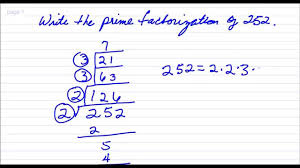 page 1
Write the prime factorization of 252.
7
3 21
3 63
2 126
2 252
2
5
4
252 = 2·2·3·